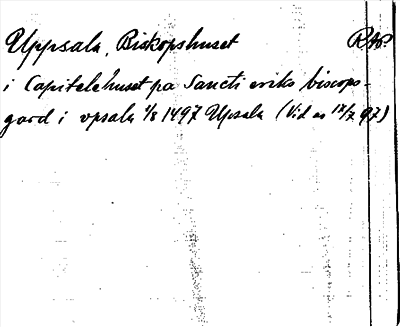 Uppsala, Biskopshuset
i Capitelshuset pa Sancti eriks biscops-
gard i vpsala 1/8 1497 Upsala (Vid as 18/7 97)